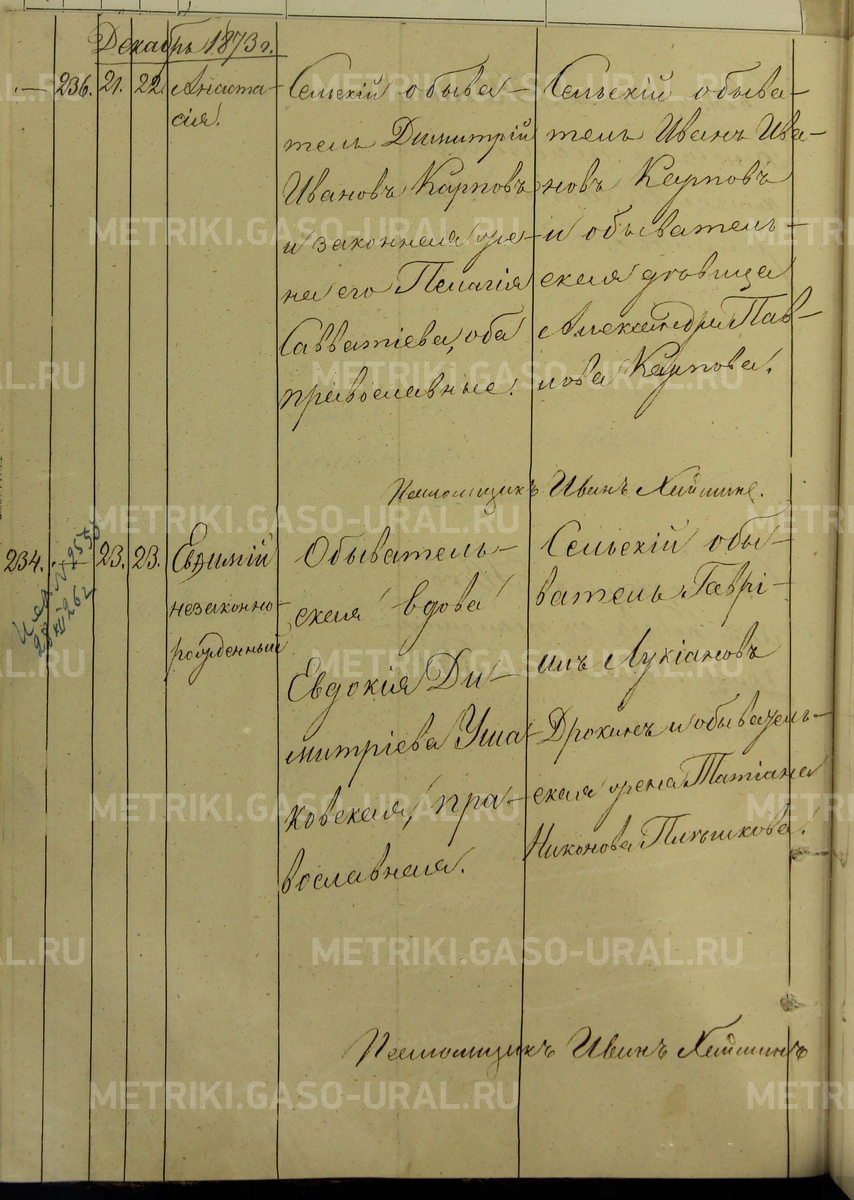 Декабрь 1873 г.
.— 236. 21. 22. Анаста-
сія.
Сельскій обыва-
тель Димитрій
Ивановъ Карповъ
и законная же-
на его Пелагія
Савватіева, оба
православные.
Сельскій обыва-
тель Иванъ Ива-
новъ Карповъ
и обыватель-
ская дѣвица
Александра Пав-
лова Карпова.
Иванъ
234. — 23. 23. Евѳимій
незаконно-
рожденный
28 XII 26 г.
Обыватель-
ская вдова
Евдокія Ди-
митріева Уша-
ковская, пра-
вославная.
Сельскій обы-
ватель Гаврі-
илъ Лукіановъ
Дрокинъ и обыватель-
ская жена Татіана
Никонова
Иванъ
METRIKI.GASO-URAL.RU